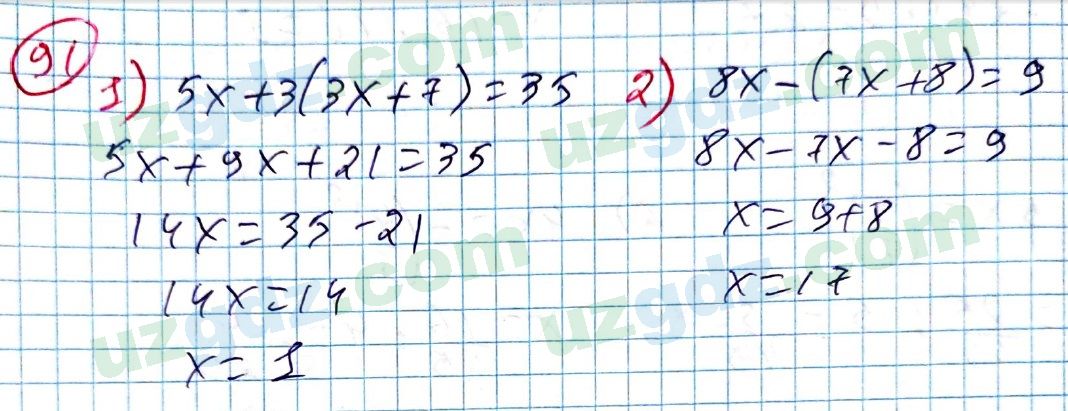 91
1) 5x+3(3x+7)=35
5x+9x+21=35
14x=35-21
14x=14
x=1
2) 8x-(7x+8)=9
8x-7x-8=9
x=9+8
x=17
uzgdz.com
uzgdz.com
uzgdz.com
uzgdz.com